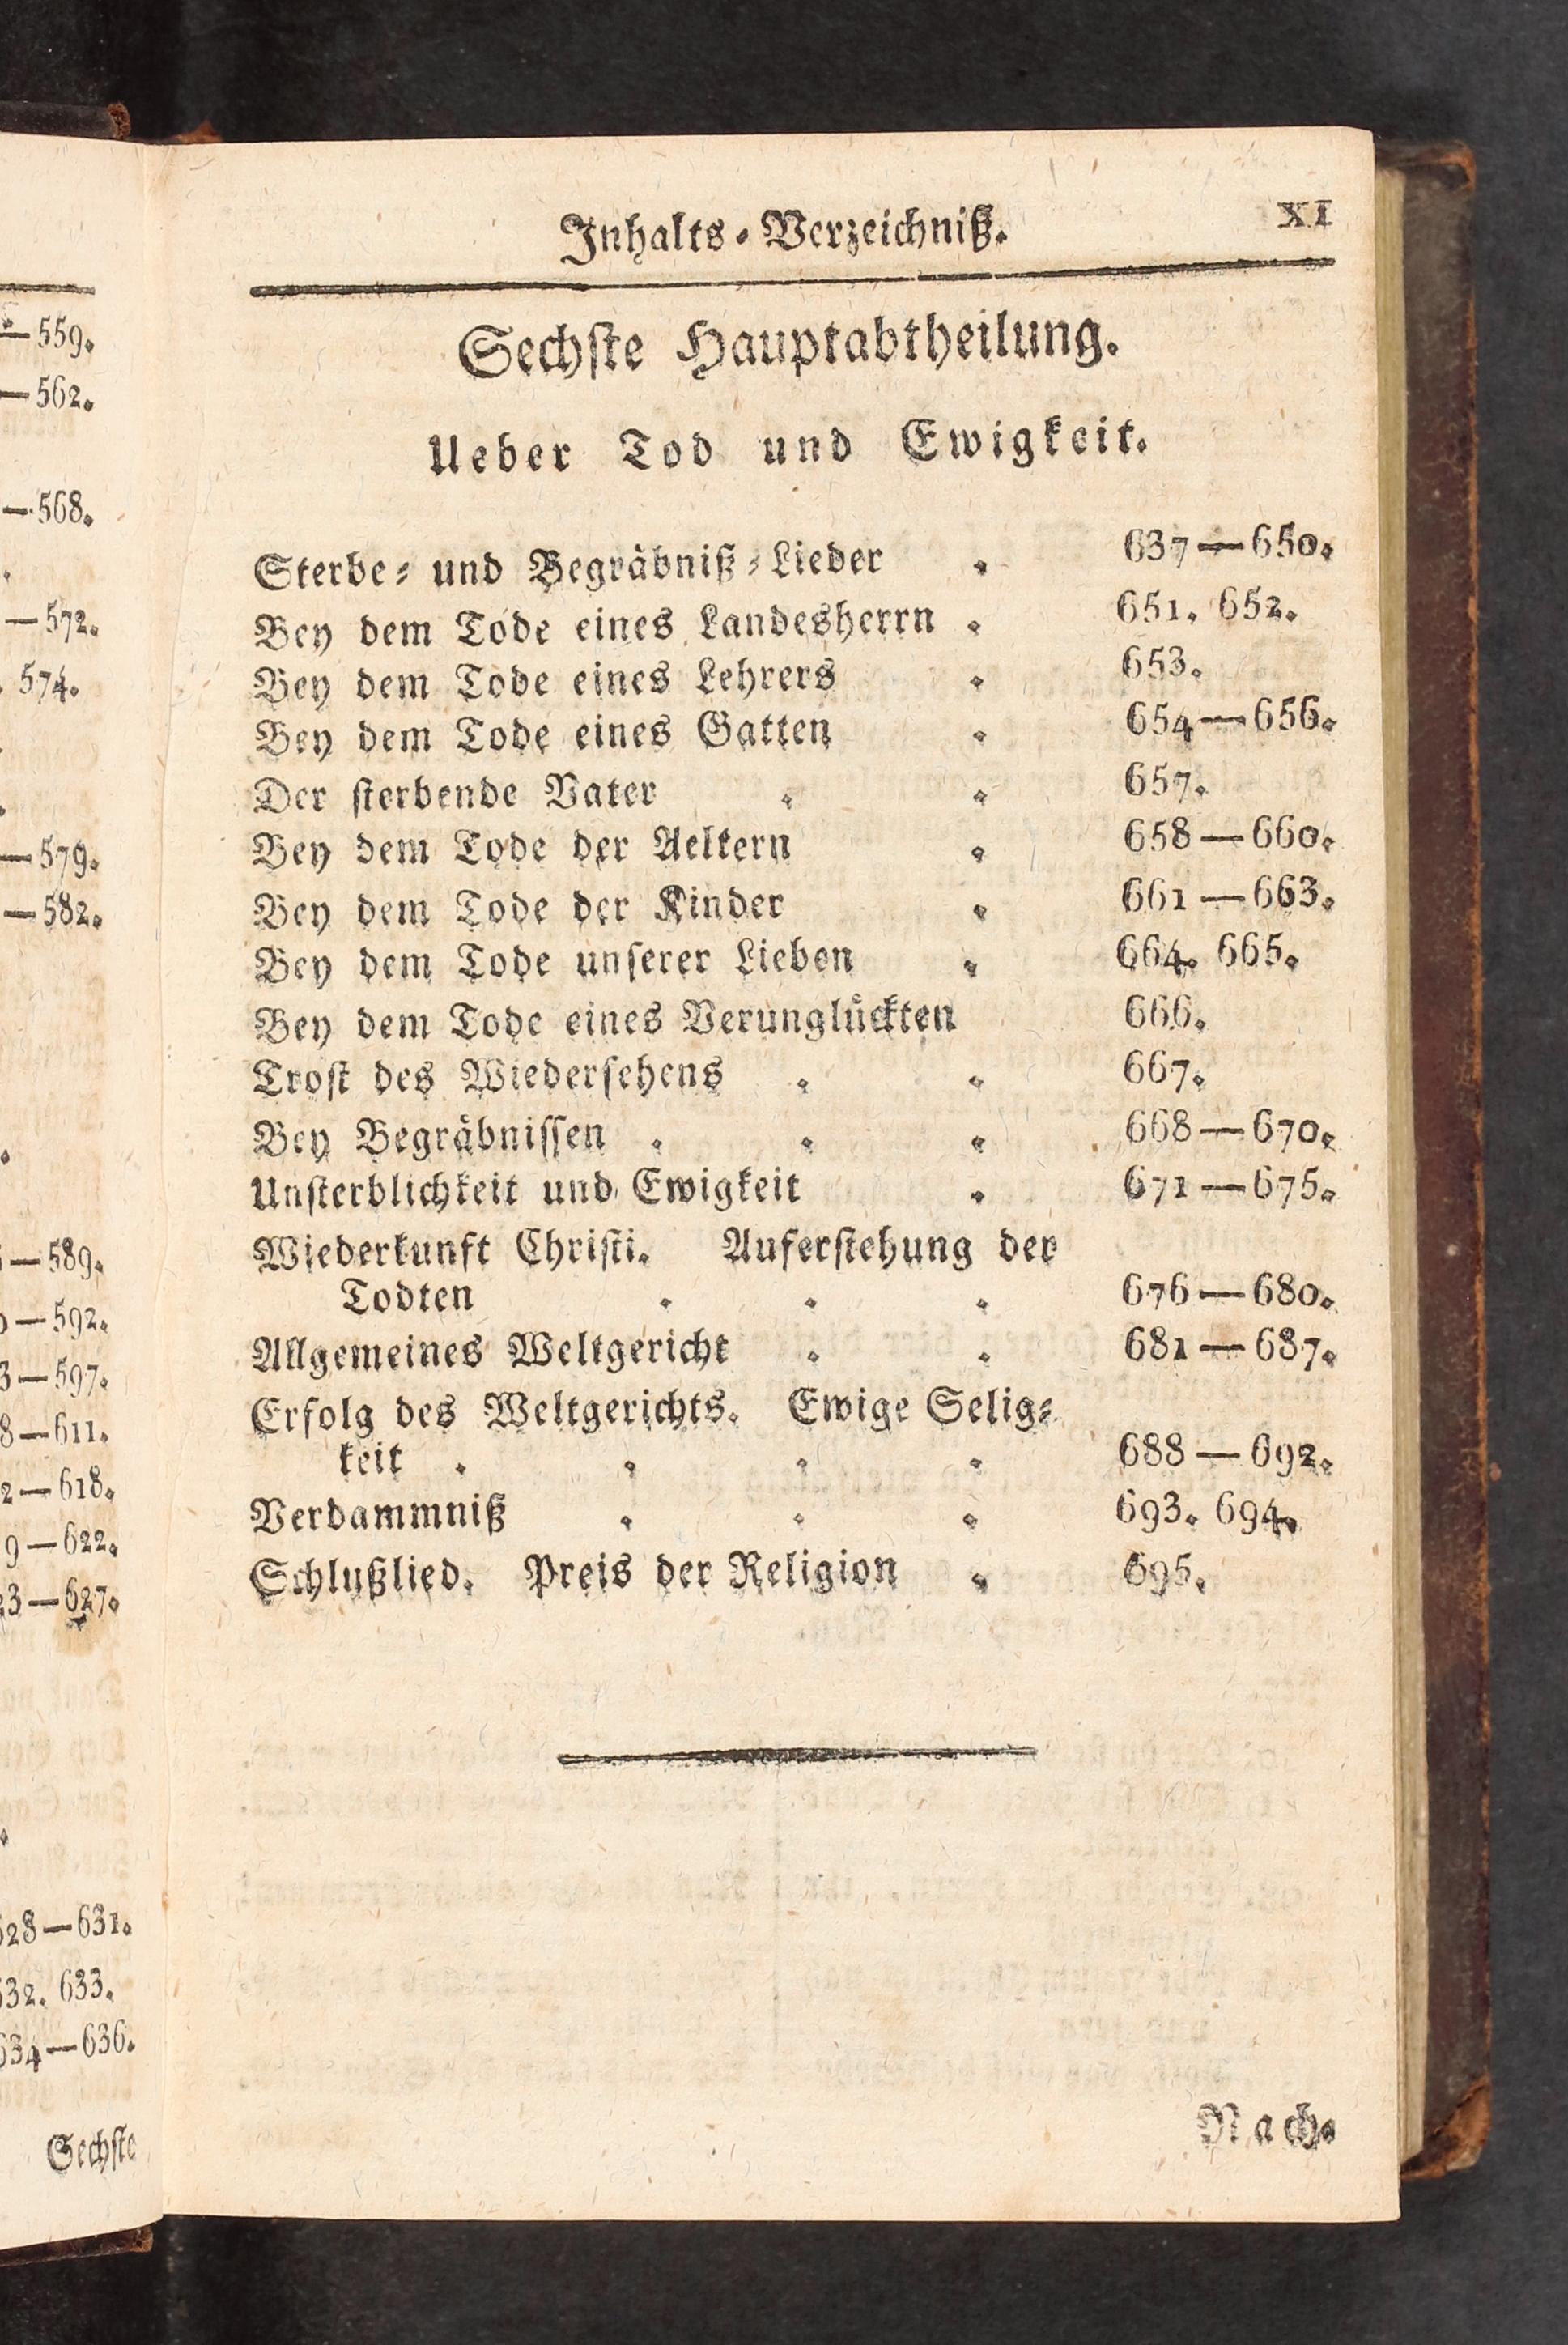 —559.
—562.
—568.
—572.
574.
—579.
—582.
—589.
—592.
3—597.
8—611.
2—618.
9—622.
23—627.
628—631.
632. 633.
634—636.
Sechste
Inhalts-Verzeichniß. XI
Sechste Hauptabtheilung.
Ueber Tod und Ewigkeit.
Sterbe- und Begräbniß-Lieder . 637—650.
Bey dem Tode eines Landesherrn . 651. 652.
Bey dem Tode eines Lehrers . 653.
Bey dem Tode eines Gatten . 654—656.
Der sterbende Vater . . 657.
Bey dem Tode der Aeltern . 658—660.
Bey dem Tode der Kinder . 661—663.
Bey dem Tode unserer Lieben . 664. 665.
Bey dem Tode eines Verunglückten 666.
Trost des Wiedersehens . . 667.
Bey Begräbnissen . . . 668—670.
Unsterblichkeit und Ewigkeit . 671—675.
Wiederkunft Christi. Auferstehung der
Todten . . . 676—680.
Allgemeines Weltgericht . . 681—687.
Erfolg des Weltgerichts. Ewige Selig-
keit . . . . 688—692.
Verdammniß . . . 693. 694.
Schlußlied. Preis der Religion . 695.
Nach-